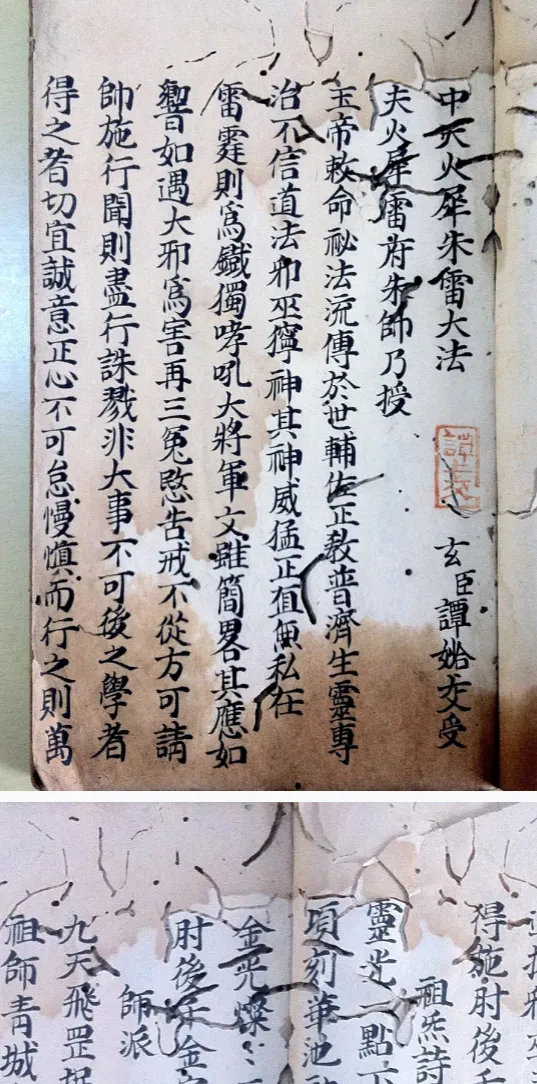 中天火犀朱雷大法
玄臣譚始受
夫火犀雷府朱帥乃授
玉帝敕命祕法流傳於世輔佐正教普濟生靈專
治不信道法邪巫獰神其神威猛正直無私在
雷霆則為鐵獨哮吼大將軍文雖簡畧其應如
響如遇大邪為害再三冤愍告戒不從方可請
帥施行聞則盡行誅戮非大事不可後之學者
得之者切宜誠意正心不可怠慢慎而行之則萬
邪巫
得施肘後
祖炁詩
靈光一點
項刻華池
金光燦〻
肘後
師派
九天飛罡捉
祖師青城